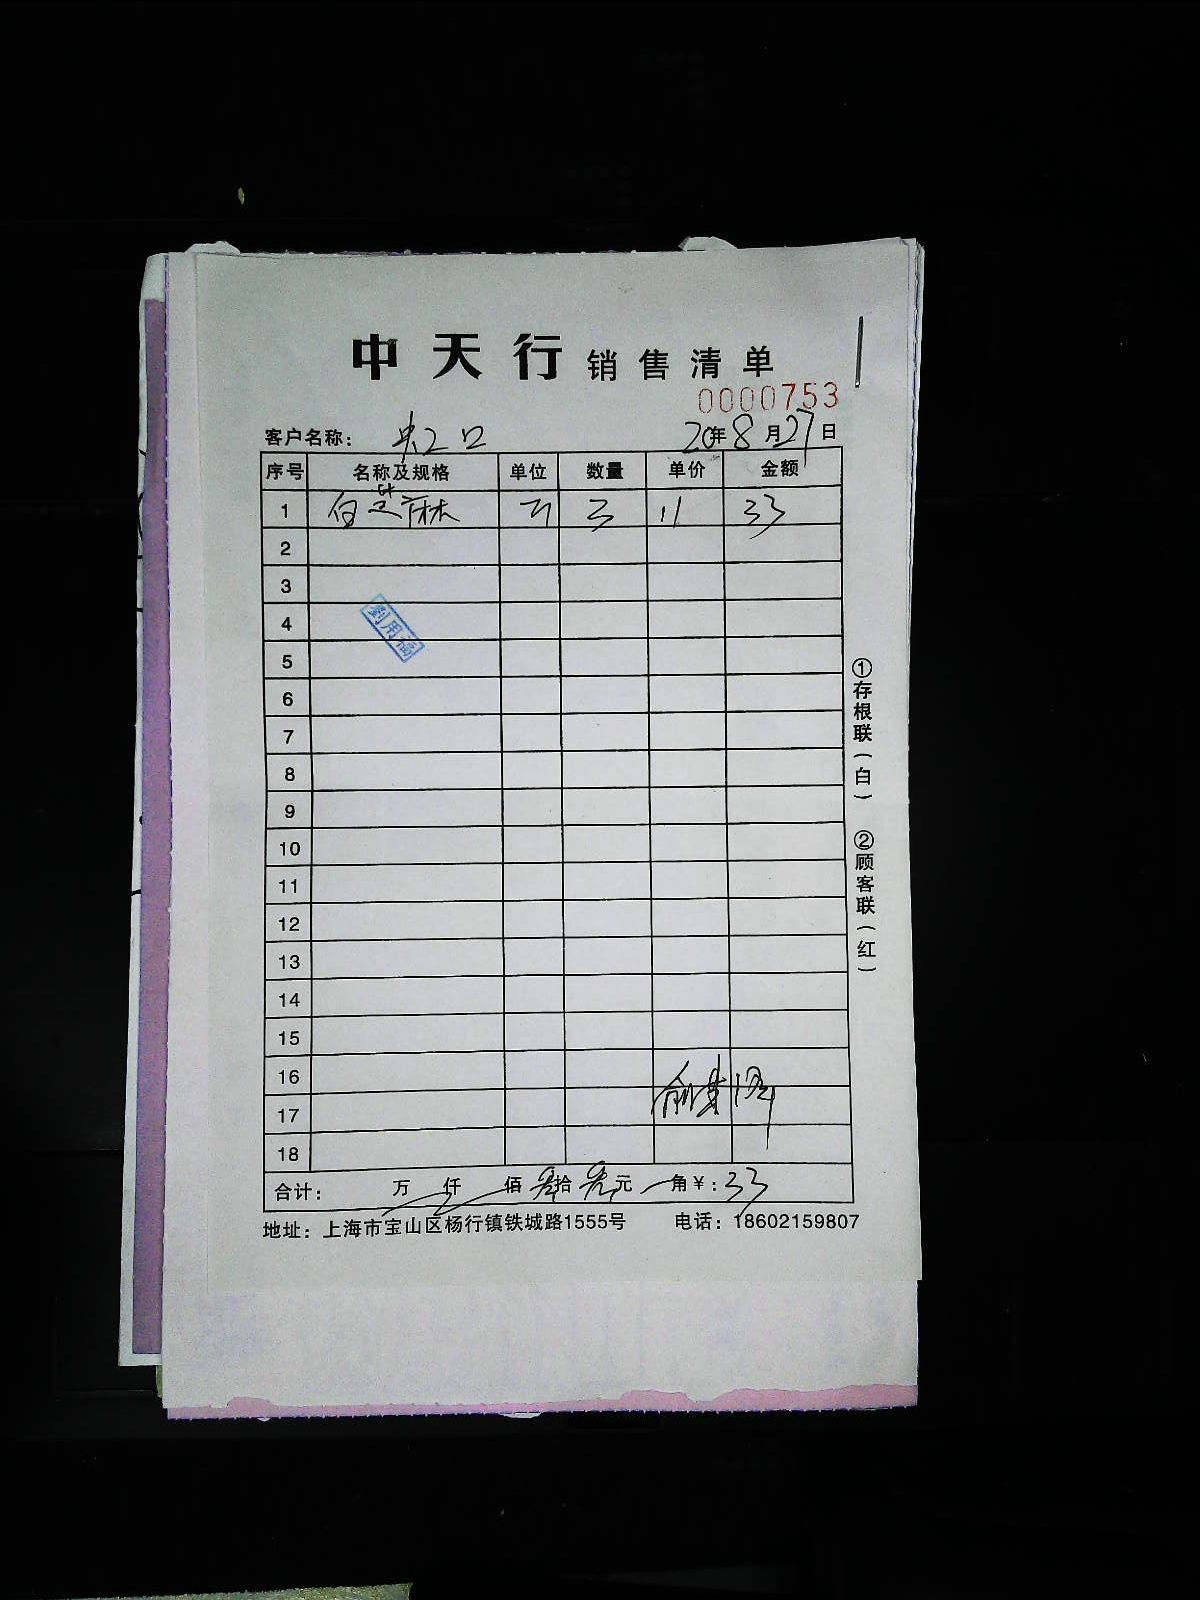 中天行 销售清单
0000753
客户名称： 虹口 20年8月27日
序号 名称及规格 单位 数量 单价 金额
1 白芝麻 斤 3 11 33
2
3
4
刘用福
5
6
7
8
9
10
11
12
13
14
15
16
17
18
合计： 万 仟 佰 叁拾 叁元 角 ¥：33
地址：上海市宝山区杨行镇铁城路1555号 电话：18602159807
①存根联（白） ②顾客联（红）